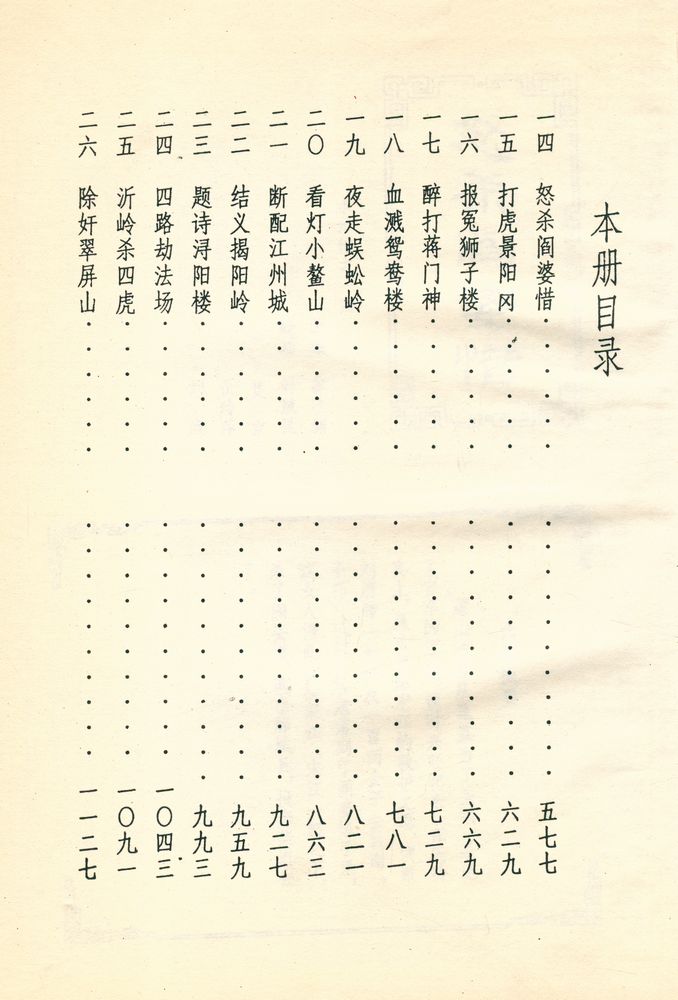 本册目录
一四 怒杀阎婆惜·················五七七
一五 打虎景阳冈·················六二九
一六 报冤狮子楼·················六六九
一七 醉打蒋门神·················七二九
一八 血溅鸳鸯楼·················七八一
一九 夜走蜈蚣岭·················八二一
二〇 看灯小鳌山·················八六三
二一 断配江州城·················九二七
二二 结义揭阳岭·················九五九
二三 题诗浔阳楼·················九九三
二四 四路劫法场················一〇四三
二五 沂岭杀四虎················一〇九一
二六 除奸翠屏山················一一二七